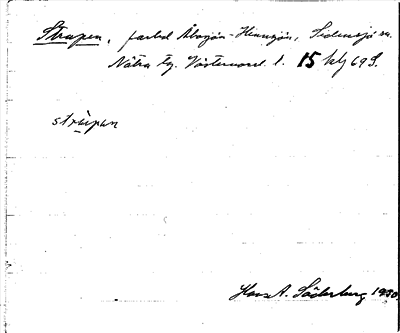 Strupen, farled Åbosjön-Hinnsjön, Sidensjö sn.
Nätra tg. Västernorrl. l. 15 kbj 69 S.
strùpan
Hans A. Söderberg 1930.